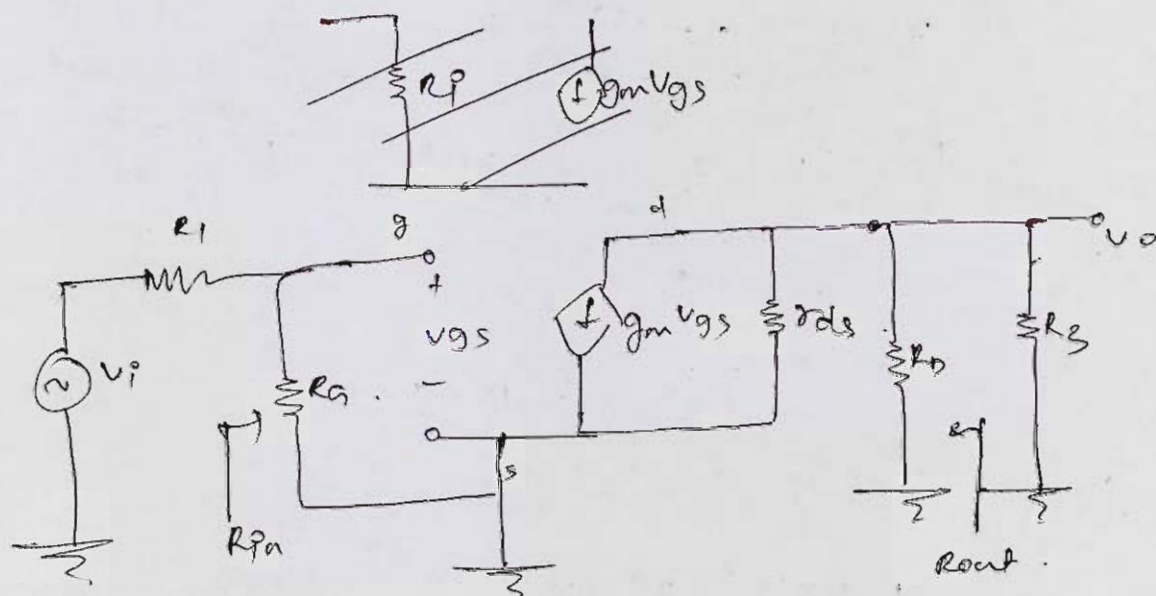 Ri
gmVgs
R1
g
d
vo
+
vgs
-
gmVgs
rds
RD
R3
Vi
RG
s
Rin
Rout